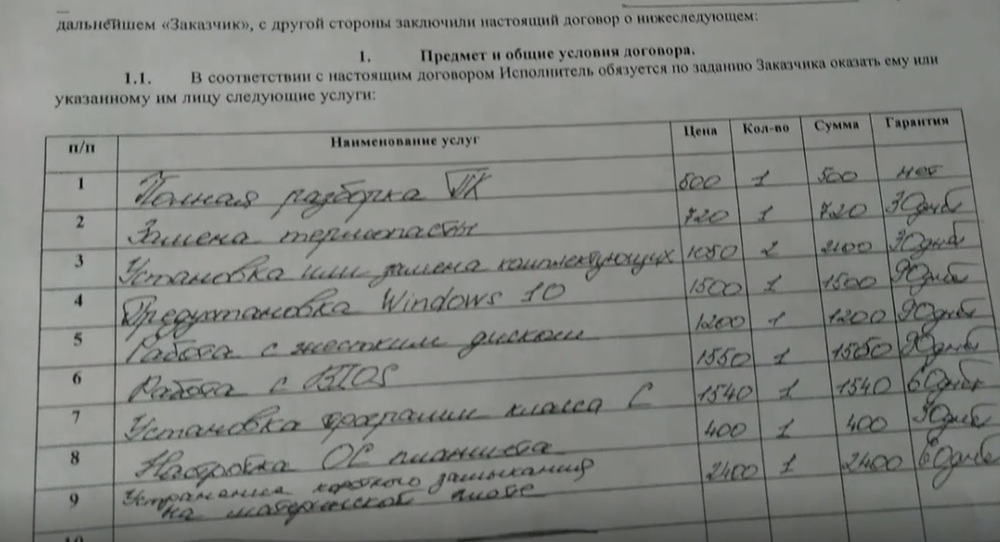 дальнейшем «Заказчик», с другой стороны заключили настоящий договор о нижеследующем:
1. Предмет и общие условия договора.
1.1. В соответствии с настоящим договором Исполнитель обязуется по заданию Заказчика оказать ему или
указанному им лицу следующие услуги:
п/п Наименование услуг Цена Кол-во Сумма Гарантия
1 Полная разборка ПК 500 1 500 нет
2 Замена термопасты 720 1 720 30дней
3 Установка или замена комплектующих 1050 2 2100 30дней
4 Предустановка Windows 10 1500 1 1500 90дней
5 Работа с жестким диском 1200 1 1200 90дней
6 Работа с BIOS 1550 1 1550 90дней
7 Установка программ класса C 1540 1 1540 60дней
8 Настройка ОС планшета 400 1 400 30дней
9 Устранение короткого замыкания 2400 1 2400 60дней
на материнской плате